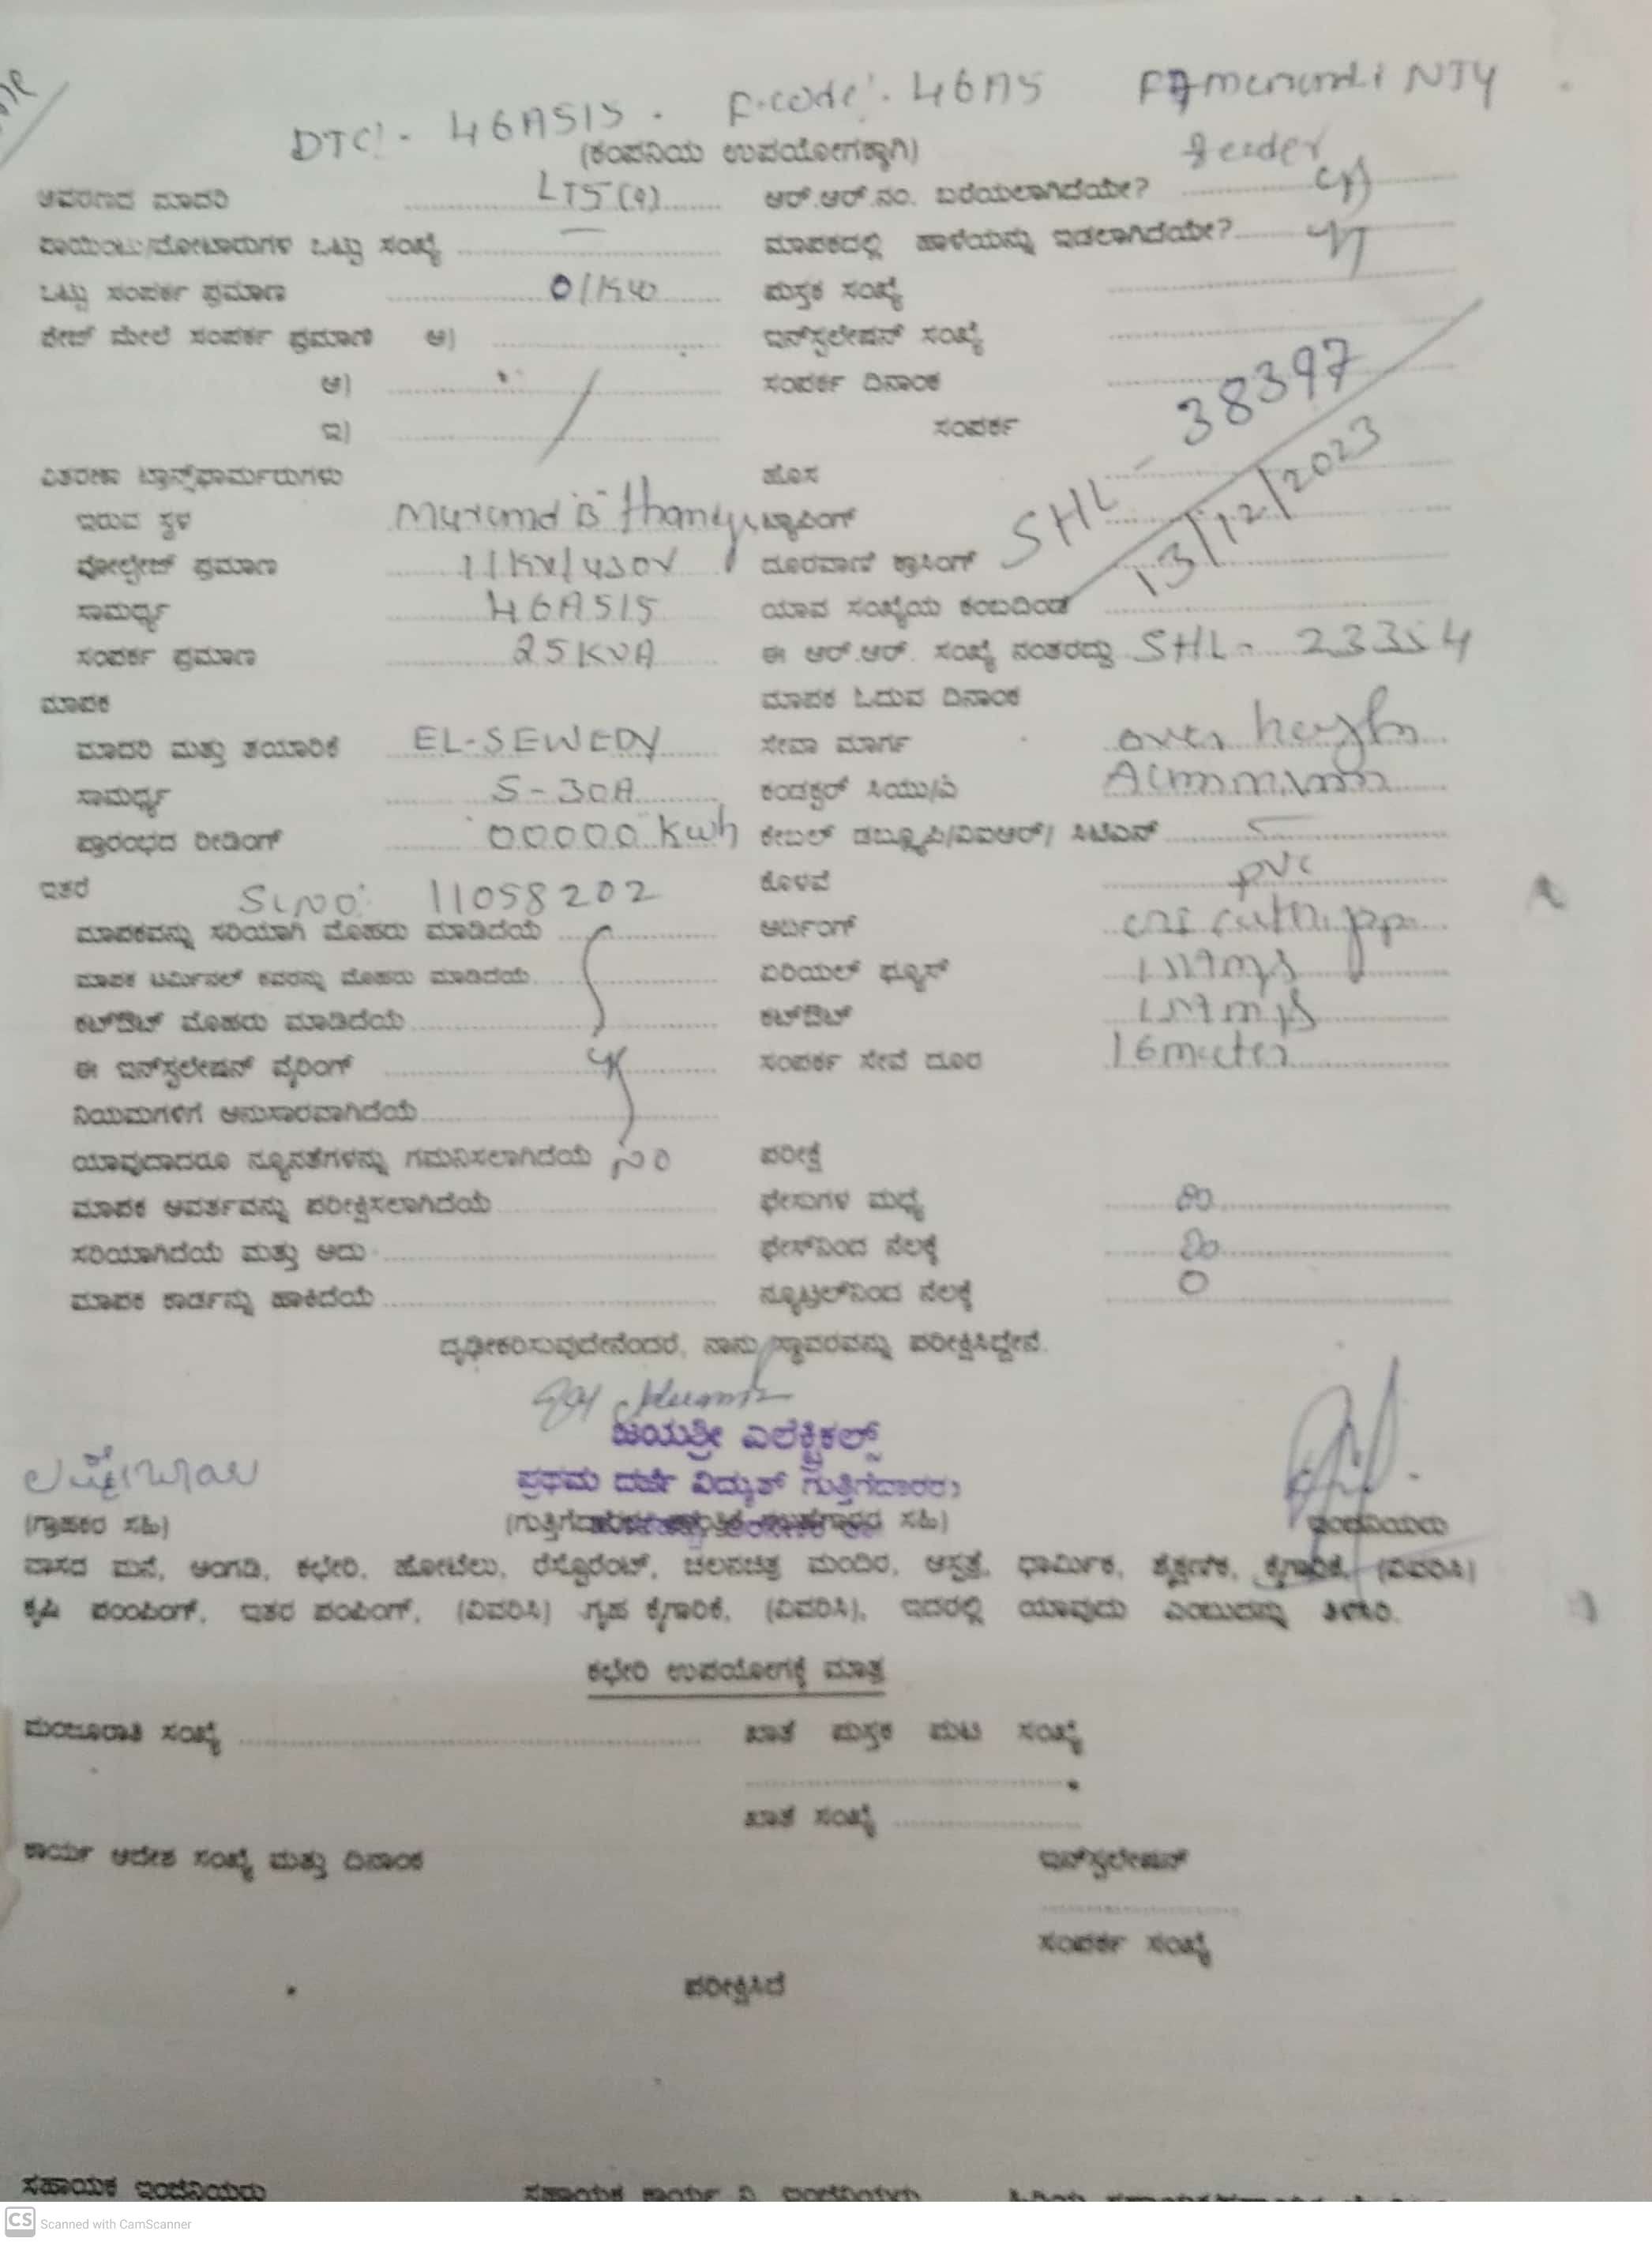 DTC:- 46AS15. F.code:- 46AS F7 NJY
feeder
(ಕಂಪನಿಯ ಉಪಯೋಗಕ್ಕಾಗಿ)
ಆವರಣದ ಮಾದರಿ LT5(a) ಆರ್.ಆರ್.ನಂ. ಬರೆಯಲಾಗಿದೆಯೇ?
ಪಾಯಿಂಟು/ಮೋಟಾರುಗಳ ಒಟ್ಟು ಸಂಖ್ಯೆ ಮಾಪಕದಲ್ಲಿ ಹಾಳೆಯನ್ನು ಇಡಲಾಗಿದೆಯೇ?
ಒಟ್ಟು ಸಂಪರ್ಕ ಪ್ರಮಾಣ ಪುಸ್ತಕ ಸಂಖ್ಯೆ
ಮೇಲೆ ಸಂಪರ್ಕ ಪ್ರಮಾಣ ಅ) ಇನ್‌ಸ್ಟಲೇಷನ್ ಸಂಖ್ಯೆ
ಆ) ಸಂಪರ್ಕ ದಿನಾಂಕ
ಇ) ಸಂಪರ್ಕ
SHL - 38397
13/12/2023
ವಿತರಣಾ ಟ್ರಾನ್ಸ್‌ಫಾರ್ಮರುಗಳು ಹೊಸ
ಇರುವ ಸ್ಥಳ ಟ್ಯಾಪಿಂಗ್
ವೋಲ್ಟೇಜ್ ಪ್ರಮಾಣ 11KV/430V ದೂರವಾಣಿ ಕ್ರಾಸಿಂಗ್
ಸಾಮರ್ಥ್ಯ 46AS15 ಯಾವ ಸಂಖ್ಯೆಯ ಕಂಬದಿಂದ
ಸಂಪರ್ಕ ಪ್ರಮಾಣ 25KVA ಈ ಆರ್.ಆರ್. ಸಂಖ್ಯೆ ನಂತರದ್ದು SHL- 23354
ಮಾಪಕ ಮಾಪಕ ಓದುವ ದಿನಾಂಕ
ಮಾದರಿ ಮತ್ತು ತಯಾರಿಕೆ EL-SEWEDY ಸೇವಾ ಮಾರ್ಗ over
ಸಾಮರ್ಥ್ಯ 5-30A ಕಂಡಕ್ಟರ್ ಸಿಯು/ಎ
ಪ್ರಾರಂಭದ ರೀಡಿಂಗ್ 00000 Kwh ಕೇಬಲ್ ಡಬ್ಲ್ಯೂಪಿ/ವಿಐಆರ್/ ಸಿಟಿಎಸ್
ಇತರೆ SLNO: 11058202 ಕೊಳವೆ PVC
ಮಾಪಕವನ್ನು ಸರಿಯಾಗಿ ಮೊಹರು ಮಾಡಿದೆಯೆ ಅರ್ಥಿಂಗ್
ಮಾಪಕ ಟರ್ಮಿನಲ್ ಕವರನ್ನು ಮೊಹರು ಮಾಡಿದೆಯೆ ಏರಿಯಲ್ ಫ್ಯೂಸ್
ಕಟ್‌ಔಟ್ ಮೊಹರು ಮಾಡಿದೆಯೆ ಕಟ್‌ಔಟ್
ಈ ಇನ್‌ಸ್ಟಲೇಷನ್ ವೈರಿಂಗ್ ಸಂಪರ್ಕ ಸೇವೆ ದೂರ 16meter
ನಿಯಮಗಳಿಗೆ ಅನುಸಾರವಾಗಿದೆಯೆ
ಯಾವುದಾದರೂ ನ್ಯೂನತೆಗಳನ್ನು ಗಮನಿಸಲಾಗಿದೆಯೆ ಪರೀಕ್ಷೆ
ಮಾಪಕ ಆವರ್ತವನ್ನು ಪರೀಕ್ಷಿಸಲಾಗಿದೆಯೆ ಫೇಸುಗಳ ಮಧ್ಯೆ
ಸರಿಯಾಗಿದೆಯೆ ಮತ್ತು ಅದು ಫೇಸ್‌ನಿಂದ ನೆಲಕ್ಕೆ
ಮಾಪಕ ಕಾರ್ಡನ್ನು ಹಾಕಿದೆಯೆ ನ್ಯೂಟ್ರಲ್‌ನಿಂದ ನೆಲಕ್ಕೆ 0
ದೃಢೀಕರಿಸುವುದೇನೆಂದರೆ, ನಾನು ಸ್ಥಾವರವನ್ನು ಪರೀಕ್ಷಿಸಿದ್ದೇನೆ.
ಜಯಶ್ರೀ ಎಲೆಕ್ಟ್ರಿಕಲ್ಸ್
ಪ್ರಥಮ ದರ್ಜೆ ವಿದ್ಯುತ್ ಗುತ್ತಿಗೆದಾರರು
(ಗ್ರಾಹಕರ ಸಹಿ) ಸಹಿ) ಇಂಜಿನಿಯರು
ವಾಸದ ಮನೆ, ಅಂಗಡಿ, ಕಛೇರಿ, ಹೋಟೆಲು, ರೆಸ್ಟೊರೆಂಟ್, ಚಲನಚಿತ್ರ ಮಂದಿರ, ಆಸ್ಪತ್ರೆ, ಧಾರ್ಮಿಕ, ಶೈಕ್ಷಣಿಕ, ಕೈಗಾರಿಕೆ, (ವಿವರಿಸಿ)
ಕೃಷಿ ಪಂಪಿಂಗ್, ಇತರ ಪಂಪಿಂಗ್, (ವಿವರಿಸಿ) ಗೃಹ ಕೈಗಾರಿಕೆ, (ವಿವರಿಸಿ), ಇದರಲ್ಲಿ ಯಾವುದು ಎಂಬುದನ್ನು ತಿಳಿಸಿ.
ಕಛೇರಿ ಉಪಯೋಗಕ್ಕೆ ಮಾತ್ರ
ಮಂಜೂರಾತಿ ಸಂಖ್ಯೆ ಖಾತೆ ಪುಸ್ತಕ ಪುಟ ಸಂಖ್ಯೆ
ಖಾತೆ ಸಂಖ್ಯೆ
ಕಾರ್ಯ ಆದೇಶ ಸಂಖ್ಯೆ ಮತ್ತು ದಿನಾಂಕ ಇನ್‌ಸ್ಟಲೇಷನ್
ಸಂಪರ್ಕ ಸಂಖ್ಯೆ
ಪರೀಕ್ಷಿಸಿದೆ
ಸಹಾಯಕ ಇಂಜಿನಿಯರು ಸಹಾಯಕ ಕಾರ್ಯ ನಿ. ಇಂಜಿನಿಯರು
CS Scanned with CamScanner